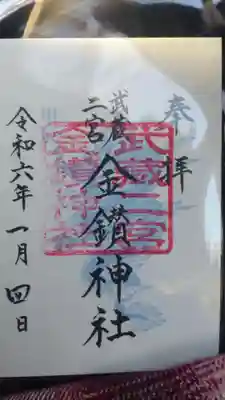 奉拝
武蔵二宮
金鑚神社
武蔵二宮
金鑚神社
令和六年一月四日